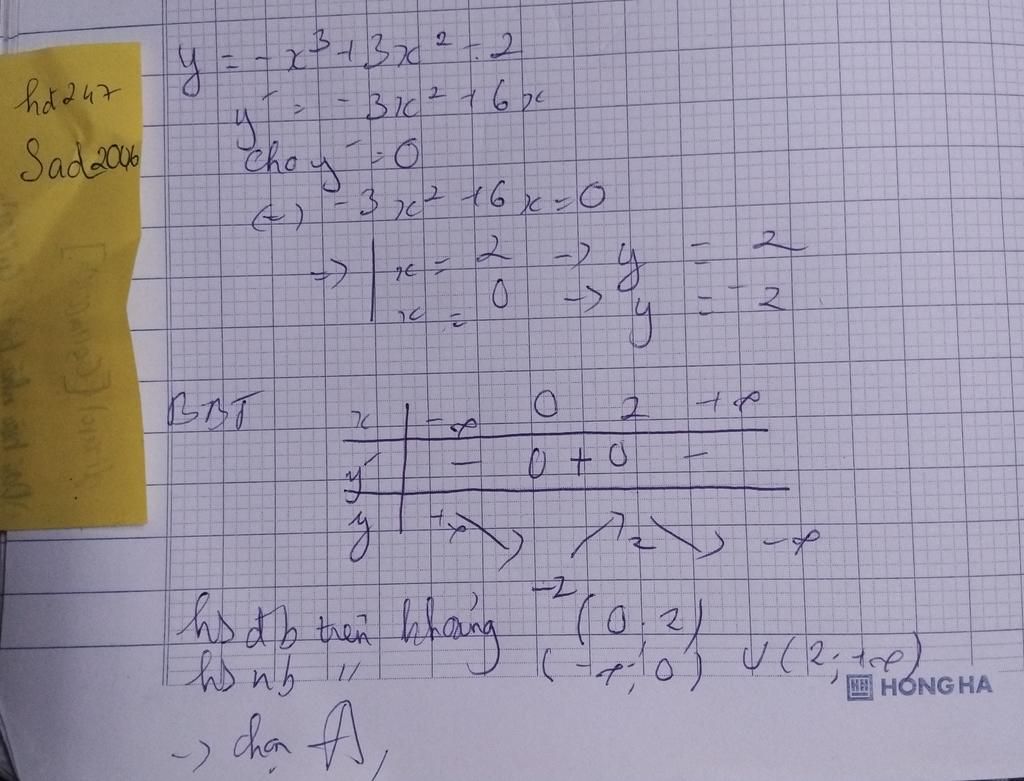 hdt247
Sad2006
y = -x³ + 3x² - 2
y' = -3x² + 6x
cho y' = 0
(=) -3x² + 6x = 0
=> | x = 2 -> y = 2
x = 0 -> y = -2
BBT
x | -∞ 0 2 +∞
y' | - 0 + 0 -
y | +∞ ↘ -2 ↗ 2 ↘ -∞
hs đb trên khoảng (0; 2)
hs nb // (-∞; 0) ∪ (2; +∞)
HONG HA
-> chọn A,